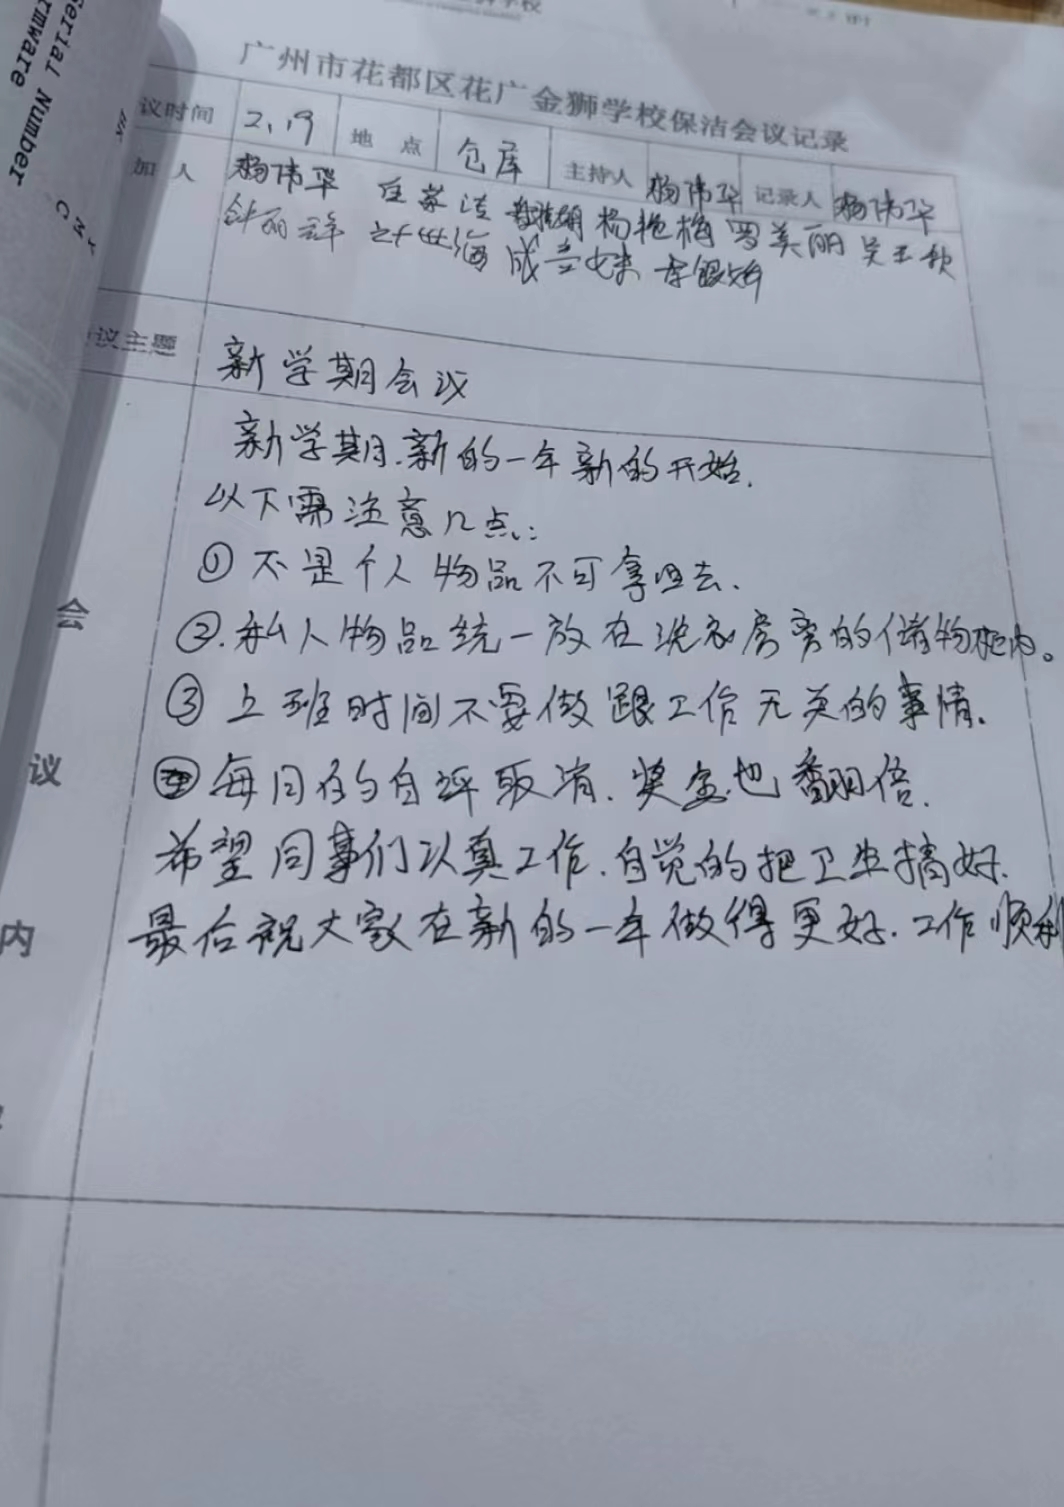 Serial Number
rmware
广州市花都区花广金狮学校保洁会议记录
议时间 2.19 地点 仓库 主持人 杨伟华 记录人 杨伟华
加人 杨伟华 杨艳梅 罗美丽 吴玉秋
李银娇
议主题 新学期会议
新学期.新的一年新的开始.
以下需注意几点:
① 不是个人物品不可拿回去.
②.私人物品统一放在洗衣房旁的储物柜内。
③ 上班时间不要做跟工作无关的事情.
每月的自评取消.奖金也翻倍.
希望同事们认真工作.自觉的把卫生搞好.
最后祝大家在新的一年做得更好.工作顺利
会
议
内